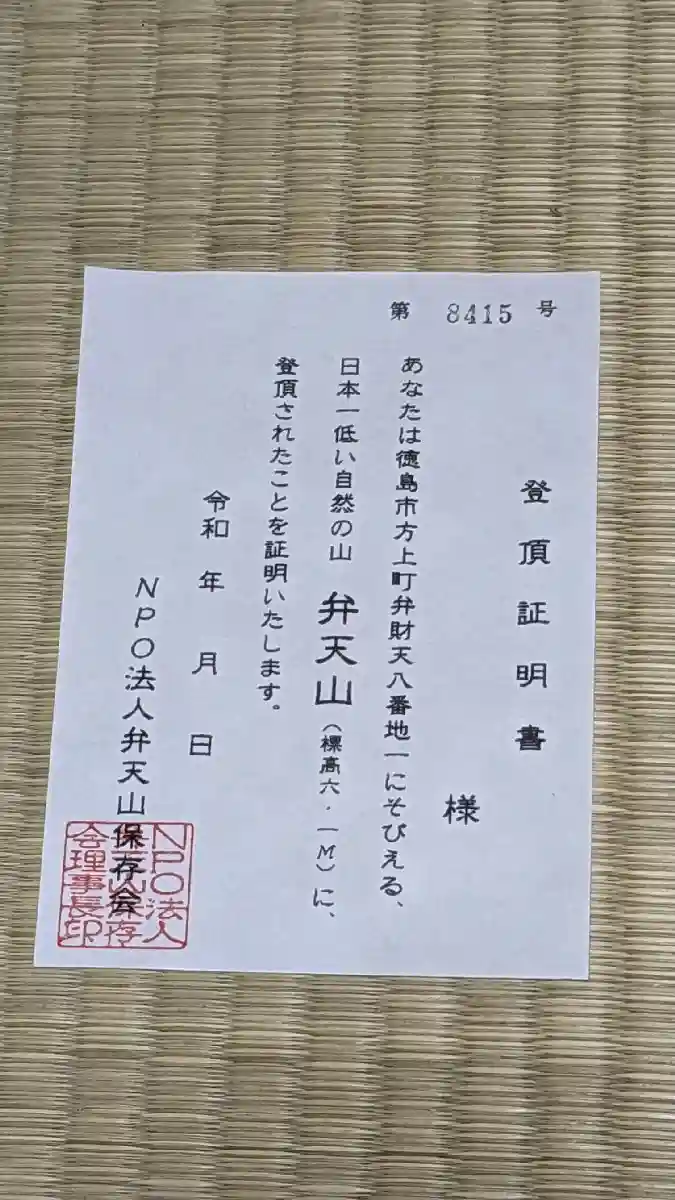 第 8415 号
登頂証明書
様
あなたは徳島市方上町弁財天八番地一にそびえる、
日本一低い自然の山 弁天山(標高六・一M)に、
登頂されたことを証明いたします。
令和 年 月 日
NPO法人弁天山保存会
NPO法人
弁天山保存
会理事長印